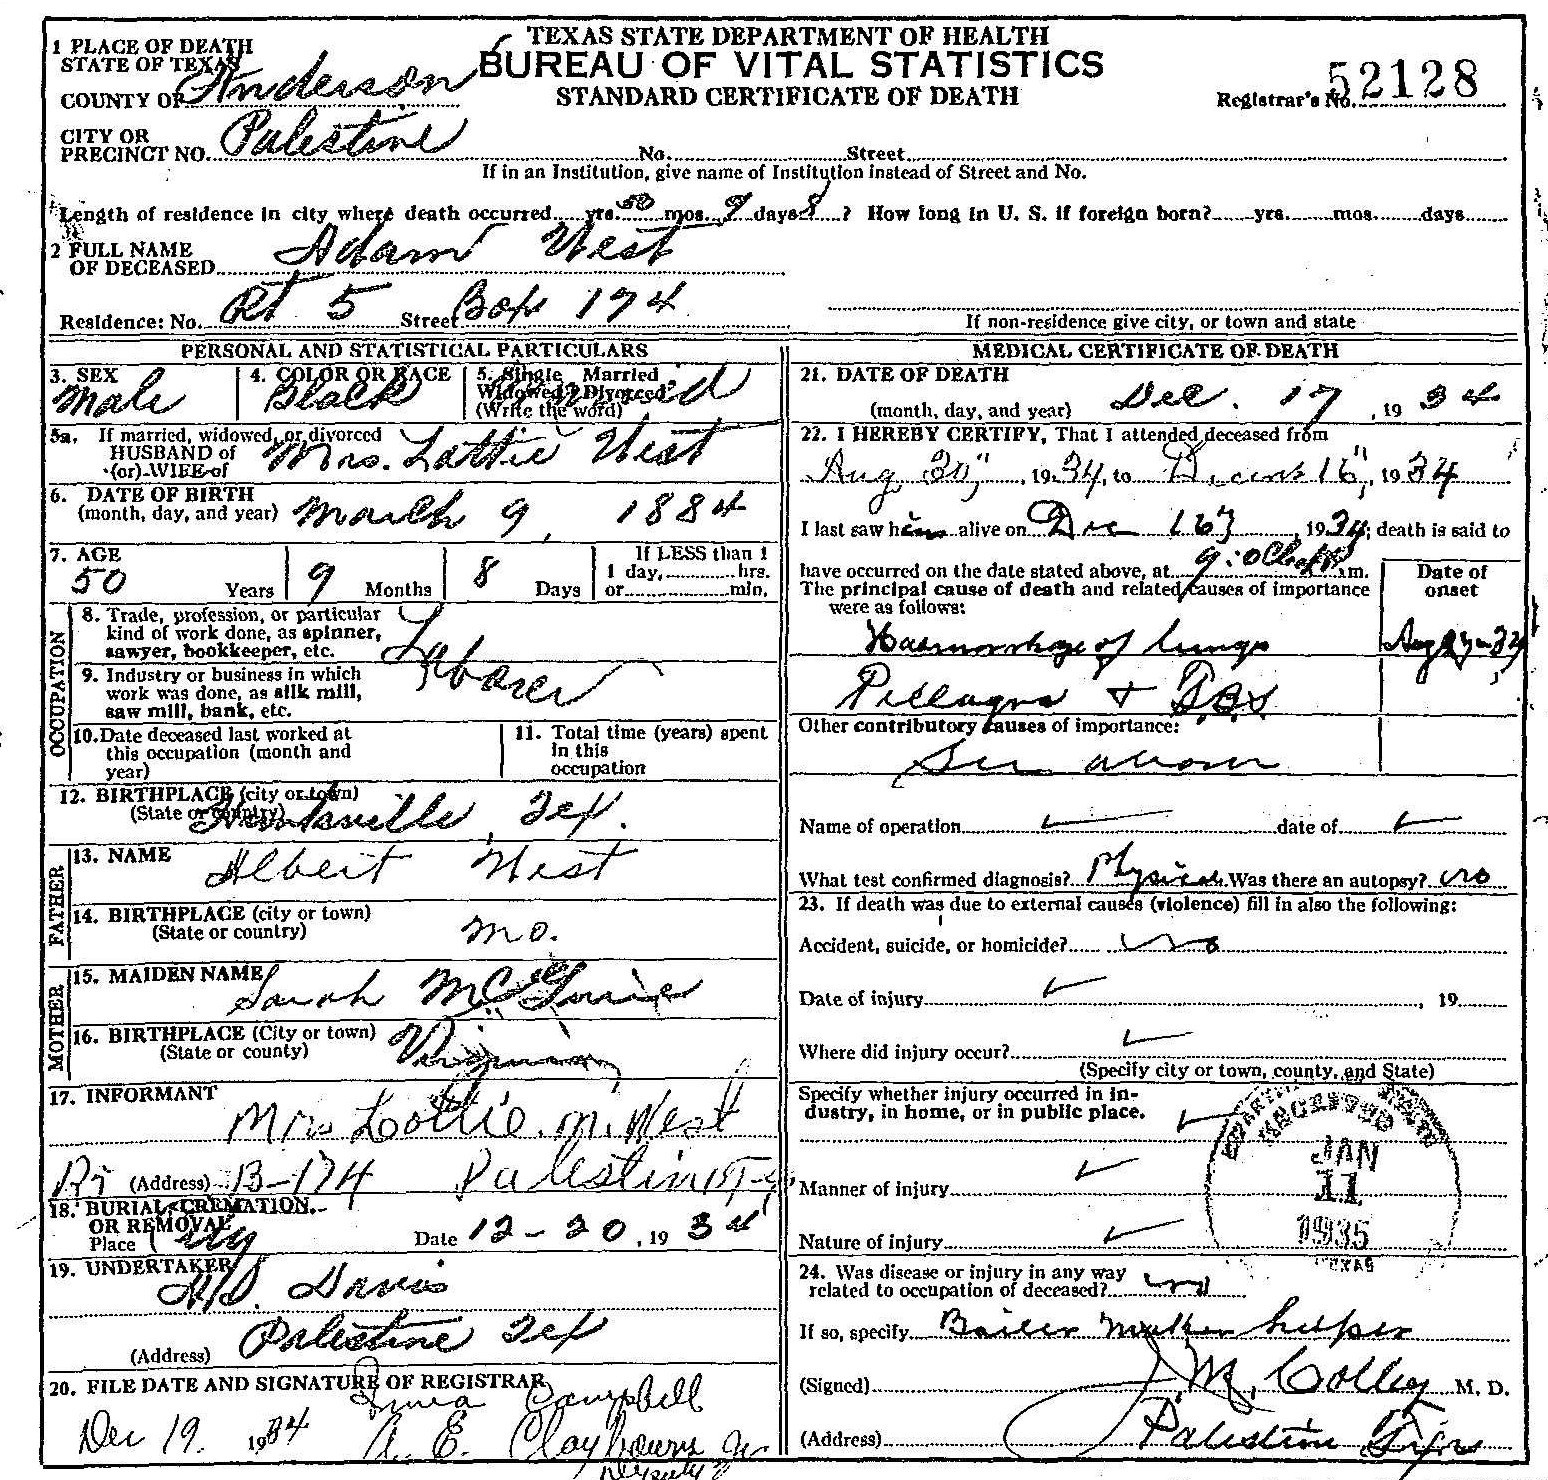 TEXAS STATE DEPARTMENT OF HEALTH
BUREAU OF VITAL STATISTICS
STANDARD CERTIFICATE OF DEATH
Registrar's No. 52128
1 PLACE OF DEATH
STATE OF TEXAS
COUNTY OF Anderson
CITY OR
PRECINCT NO. Palestine No. Street
If in an Institution, give name of Institution instead of Street and No.
Length of residence in city where death occurred yrs. 50 mos. 9 days 8 ? How long in U. S. if foreign born? yrs. mos. days
2 FULL NAME
OF DECEASED Adam West
Residence: No. Rt 5 Street Box 174
If non-residence give city, or town and state
PERSONAL AND STATISTICAL PARTICULARS
3. SEX
Male
4. COLOR OR RACE
Black
5. Single Married
Widowed? Divorced?
(Write the word)
5a. If married, widowed, or divorced
HUSBAND of
(or) WIFE of Mrs. Lottie West
6. DATE OF BIRTH
(month, day, and year) March 9, 1884
7. AGE
50 Years 9 Months 8 Days
If LESS than 1
1 day, hrs.
or min.
OCCUPATION
8. Trade, profession, or particular
kind of work done, as spinner,
sawyer, bookkeeper, etc.
Laborer
9. Industry or business in which
work was done, as silk mill,
saw mill, bank, etc.
10. Date deceased last worked at
this occupation (month and
year)
11. Total time (years) spent
in this
occupation
12. BIRTHPLACE (city or town)
(State or country) Huntsville, Tex.
FATHER
13. NAME
Albert West
14. BIRTHPLACE (city or town)
(State or country) Mo.
MOTHER
15. MAIDEN NAME
Sarah
16. BIRTHPLACE (City or town)
(State or county) Virginia
17. INFORMANT
Mrs Lottie M. West
Rt (Address) B-174 Palestine
18. BURIAL, CREMATION,
OR REMOVAL
Place City Date 12-20, 1934
19. UNDERTAKER
Davis
(Address) Palestine Tex
20. FILE DATE AND SIGNATURE OF REGISTRAR
Dec 19. 1934
Campbell
A. E. Jr
Deputy
MEDICAL CERTIFICATE OF DEATH
21. DATE OF DEATH
(month, day, and year) Dec. 17, 1934
22. I HEREBY CERTIFY, That I attended deceased from
Aug 30, 1934, to 16, 1934
I last saw him alive on Dec 16, 1934; death is said to
have occurred on the date stated above, at 9: m.
The principal cause of death and related causes of importance
were as follows:
Date of
onset
Haemorrhage of lungs Aug
Pellagra +
Other contributory causes of importance:
See above
Name of operation date of
What test confirmed diagnosis? Physical Was there an autopsy? no
23. If death was due to external causes (violence) fill in also the following:
Accident, suicide, or homicide? no
Date of injury , 19
Where did injury occur?
(Specify city or town, county, and State)
Specify whether injury occurred in in-
dustry, in home, or in public place.
Manner of injury
Nature of injury
RECEIVED
JAN
11
1935
TEXAS
24. Was disease or injury in any way
related to occupation of deceased? no
If so, specify Boiler Maker helper
(Signed) J. M. Colley M. D.
(Address) Palestine